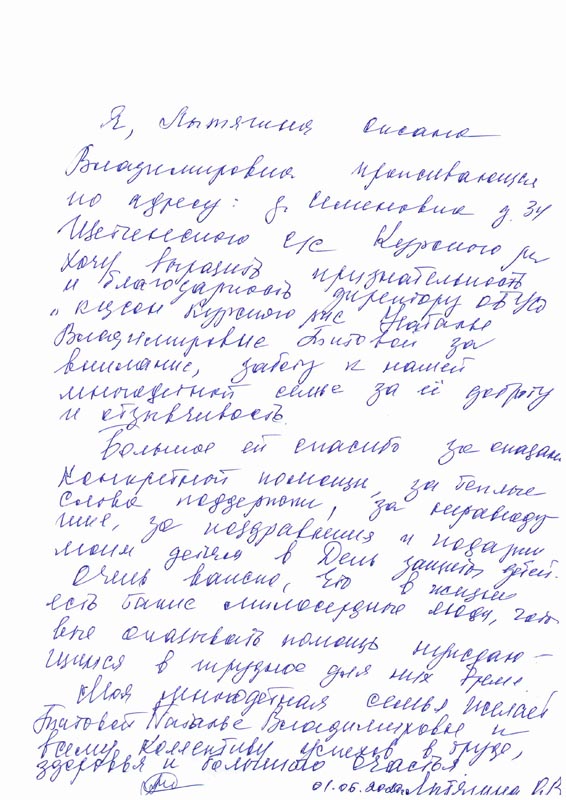 Я, Лытягина Оксана
Владимировна проживающая
по адресу: д. Семеновка д. 34
Щетинского с/с Курского р-н
хочу выразить признательность
и благодарность директору ОБУСО
"КЦСОН Курского р-на" Наталье
Владимировне Титовой за
внимание, заботу к нашей
многодетной семье за её доброту
и отзывчивость.
Большое ей спасибо за оказан
конкретной помощи, за теплые
слова поддержки, за неравноду
шие, за поздравления и подарки
моим детям в День защиты детей.
Очень важно, что в жизни
есть такие милосердные люди, гото
вые оказывать помощь нуждаю-
щимся в трудное для них время.
Моя многодетная семья желает
Титовой Наталье Владимировне и
всему коллективу успехов в труде,
здоровья и большого счастья
01.06.2020 Лытягина О.В